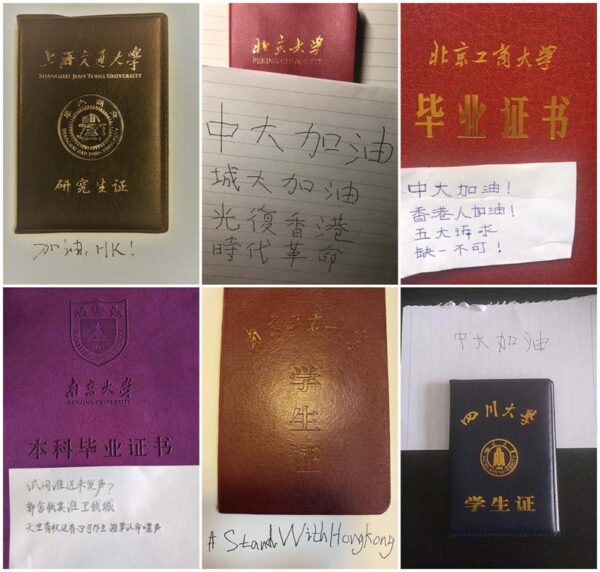 上海交通大学
SHANGHAI JIAO TONG UNIVERSITY
研究生证
加油, HK!
北京大学
PEKING UNIVERSITY
中大加油
城大加油
光復香港
時代革命
北京工商大学
毕业证书
中大加油！
香港人加油！
五大诉求
缺一不可！
南京大学
本科毕业证书
试问谁还未发声？
都舍我其谁卫我城
天生有权还有心可作主 谁要认命噤声
学生证
#StandWithHongKong
中大加油
四川大学
学生证